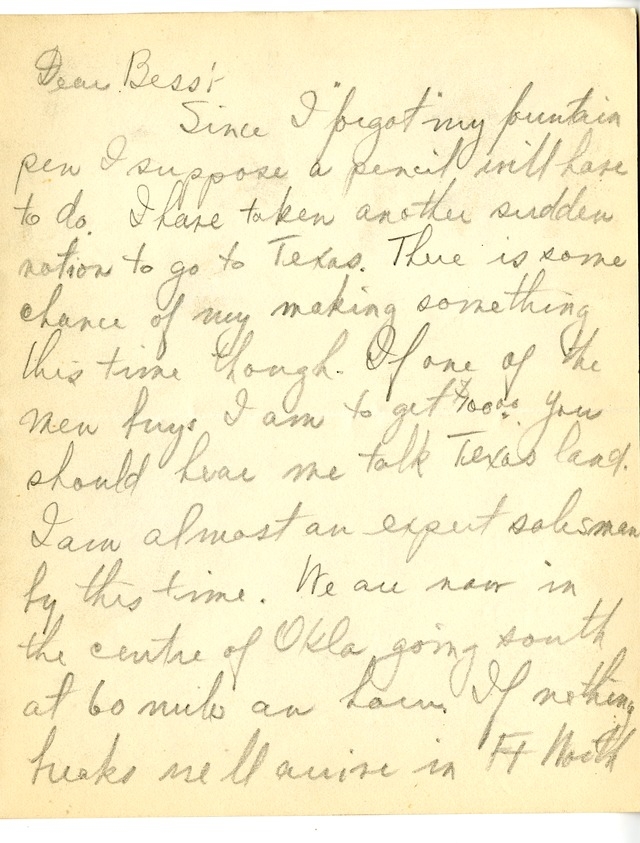 Dear Bess:
Since I "forgot" my fountain
pen I suppose a pencil will have
to do. I have taken another sudden
notion to go to Texas. There is some
chance of my making something
this time though. If one of the
men buys I am to get $400.00. You
should hear me talk Texas land.
I am almost an expert salesman
by this time. We are now in
the centre of Okla going south
at 60 mile an hour. If nothing
breaks we'll arrive in Ft Worth